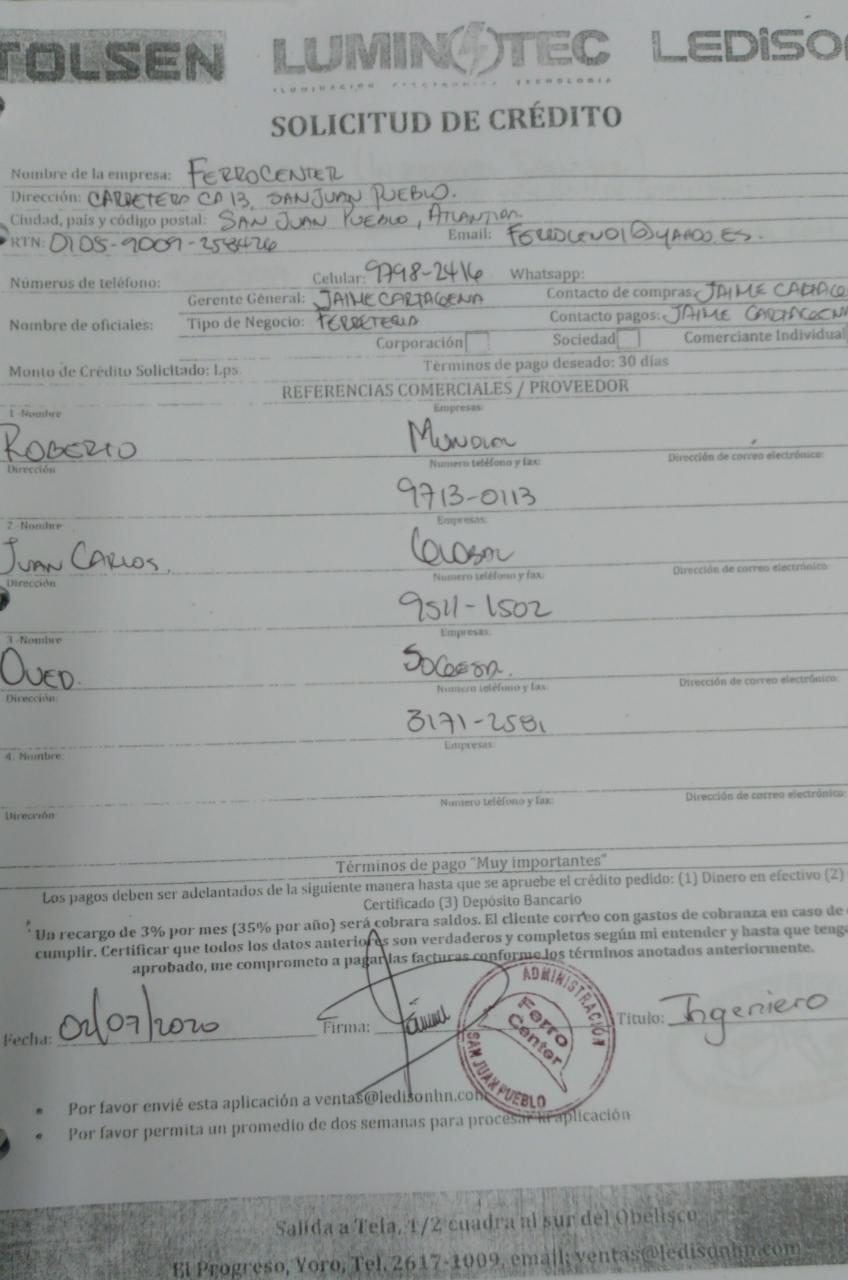 TOLSEN LUMINOTEC LEDISO
ILUMINACION ELECTRONICA TECNOLOGIA
SOLICITUD DE CRÉDITO
Nombre de la empresa: FERROCENTER
Dirección: CARRETERA CA 13, SAN JUAN PUEBLO.
Ciudad, país y código postal: SAN JUAN PUEBLO, ATLANTIDA
RTN: 0105-9009-258426 Email: FERROCEN01@YAHOO.ES.
Números de teléfono: Celular: 9798-2416 Whatsapp:
Gerente Géneral: JAIME CARTAGENA Contacto de compras: JAIME CARTAGE
Nombre de oficiales: Tipo de Negocio: FERRETERIA Contacto pagos: JAIME CARTAGENA
Corporación Sociedad Comerciante Individual
Monto de Crédito Solicitado: Lps. Términos de pago deseado: 30 días
REFERENCIAS COMERCIALES / PROVEEDOR
1 -Nombre Empresas:
ROBERTO MUNDIAL
Dirección Numero teléfono y fax: Dirección de correo electrónico:
9713-0113
2 -Nombre Empresas:
JUAN CARLOS. GLOBAL
Dirección Numero teléfono y fax: Dirección de correo electrónico:
9511-1502
3 -Nombre Empresas:
OVED.
Dirección: Numero teléfono y fax: Dirección de correo electrónico:
3171-2581
4. Nombre: Empresas:
Dirección: Numero teléfono y fax: Dirección de correo electrónico:
Términos de pago "Muy importantes"
Los pagos deben ser adelantados de la siguiente manera hasta que se apruebe el crédito pedido: (1) Dinero en efectivo (2)
Certificado (3) Depósito Bancario
Un recargo de 3% por mes (35% por año) será cobrara saldos. El cliente correo con gastos de cobranza en caso de
cumplir. Certificar que todos los datos anteriores son verdaderos y completos según mi entender y hasta que tenga
aprobado, me comprometo a pagar las facturas conforme los términos anotados anteriormente.
Fecha: 02/07/2020 Firma: Título: Ingeniero
ADMINISTRACION
Ferro
Center
SAN JUAN PUEBLO
• Por favor envié esta aplicación a ventas@ledisonhn.com
• Por favor permita un promedio de dos semanas para procesar la aplicación
Salida a Tela, 1/2 cuadra al sur del Obelisco
El Progreso, Yoro, Tel. 2617-1009, email: ventas@ledisonhn.com